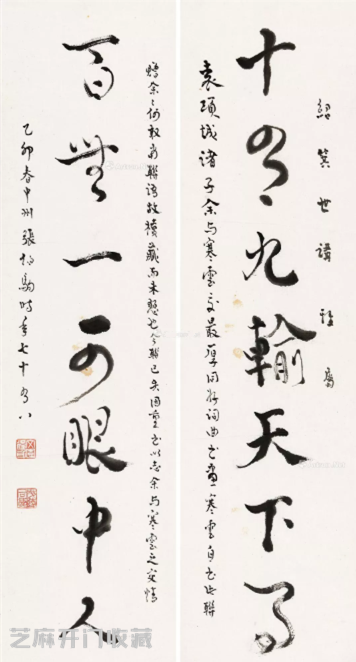 紹箕世講雅屬
十有九輸天下事
袁項城諸子余与寒雲交最厚同好詞曲書畫寒雲自書此聯
贈余余何敢當聯語故櫝藏而未懸也今聯已失因重書以志余与寒雲之交情
百無一可眼中人
乙卯春中州張伯駒時年七十有八
芝麻开门收藏